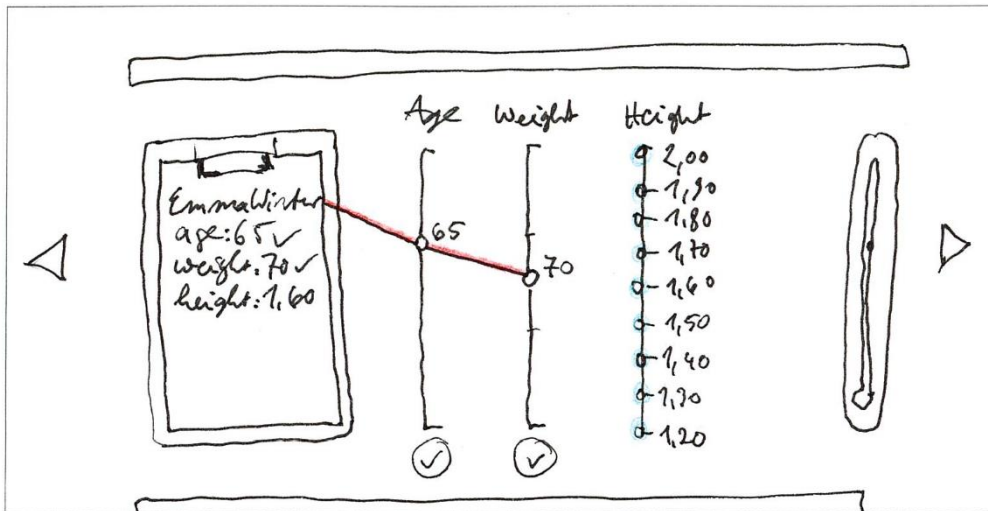 Age Weight Height
Emma Winter
age: 65 ✓
weight: 70 ✓
height: 1,60
65
70
2,00
1,90
1,80
1,70
1,60
1,50
1,40
1,30
1,20